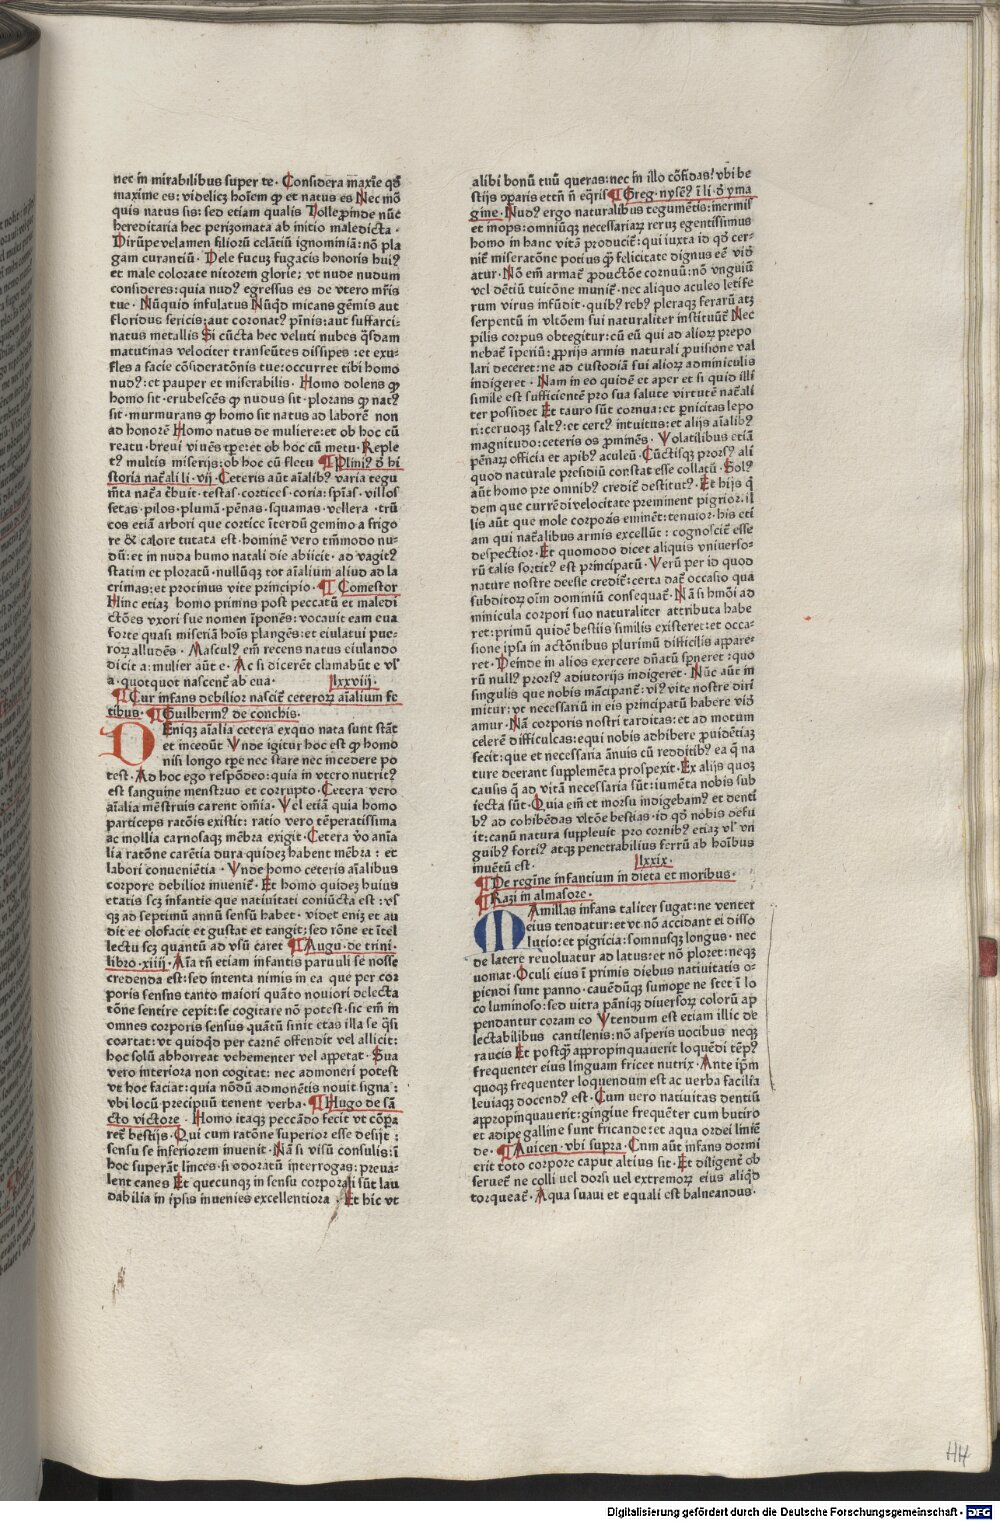 nec in mirabilibus super te · Considera maxīe qđ
maxime es: videlicꝫ hoīem ꝙ et natus es Nec mō
quis natus sis: sed etiam qualis Tolle ꝓinde nūc
hereditaria hec perizomata ab initio maledicta ·
Dirūpe velamen filiorū celātiū ignominiā: nō pla
gam curantiū · Dele fucuꝫ fugacis honoris huiꝰ
et male colorate nitorem glorie; vt nude nudum
consideres: quia nudꝰ egressus es de vtero mr̄is
tue · Nūquid infulatus Nūqd micans gēmis aut
floridus sericis: aut coronatꝰ pīnis: aut suffarci-
natus metallis Si cūcta hec veluti nubes q̄sdam
matutinas velociter transeūtes dissipes : et exu-
fles a facie cōsideratōnis tue: occurret tibi homo
nudꝰ: et pauper et miserabilis · Homo dolens ꝙ
homo sit · erubescēs ꝙ nudus sit · plorans ꝙ natꝰ
sit · murmurans ꝙ homo sit natus ad laborē non
ad honorē Homo natus de muliere: et ob hoc cū
reatu · brevi viuēs tꝑe: et ob hoc cū metu · Reple
tꝰ multis miserijs: ob hoc cū fletu ¶ Pliniꝰ ī hi
storia nat̄ali li · vij · Ceteris aūt aīalibꝰ varia tegu
mīta nat̄a t̄buit · testas · cortices · coria: spīas · villos
setas · pilos · plumā · pēnas · squamas · vellera · trū
cos etiā arbori que cortice īterdū gemino a frigo
re & calore tutata est · hominē vero tm̄modo nu-
dū: et in nuda humo natali die abiicit · ad vagitꝰ
statim et ploratū · nullūqꝫ tot aīalium aliud ad la
crimas: et protinus vite principio · ¶ Comestor
Hinc etiaꝫ homo primus post peccatū et maledi
ctōes vxori sue nomen īponēs: vocauit eam eua
forte quasi miseriā hoīs plangēs: et eiulatui pue-
roꝝ alludēs · Masculꝰ em̄ recens natus eiulando
dicit a: mulier aūt e · Ac si dicerēt clamabūt e vl
a · quotquot nascent̄ ab eua · lxxviij ·
¶ Cur infans debilior nascit̄ ceteroꝝ aīalium fe
tibus · ¶ Guilhermꝰ de conchis ·
DEniqꝫ aīalia cetera exquo nata sunt stāt
et incedūt Vnde igitur hoc est ꝙ homo
nisi longo tꝑe nec stare nec incedere po
test · Ad hoc ego respōdeo: quia in vtero nutritꝰ
est sanguine menstruo et corrupto · Cetera vero
aīalia mēstruis carent oīa · Vel etiā quia homo
particeps ratōis existit: ratio vero tēperatissima
ac mollia carnosaqꝫ mēbra exigit · Cetera v̄o anīa
lia ratōne carētia dura quideꝫ habent mēbra : et
labori conueniētia · Vnde homo ceteris aīalibus
corpore debilior inuenit̄ · Et homo quideꝫ huius
etatis scꝫ infantie que natiuitati coniūcta est : vs
qꝫ ad septimū annū sensū habet · videt enīꝫ et au
dit et olofacit et gustat et tangit; sed rōne et ītel
lectu scꝫ quantū ad vsū caret ¶ Augu · de trini ·
libro · xiiij · Aīa tn̄ etiam infantis paruuli se nosse
credenda est: sed intenta nimis in ea que per cor
poris sensus tanto maiori quāto nouiori delecta
tōne sentire cepit: se cogitare nō potest · sic em̄ in
omnes corporis sensus quātū sinit etas illa se q̄si
coartat: vt quidqd per carnē offendit vel allicit:
hoc solū abhorreat vehementer vel appetat · Sua
vero interiora non cogitat: nec admoneri potest
vt hoc faciat: quia nōdū admonētis nouit signa :
vbi locū precipuū tenent verba · ¶ Hugo de sā
cto victore · Homo itaqꝫ peccādo fecit vt cōpa
ret̄ bestijs · Qui cum ratōne superior esse desijt :
sensu se inferiorem inuenit · Nā si visū consulis: ī
hoc superāt linces · si odoratū interrogas: preua-
lent canes Et quecunqꝫ in sensu corporali sūt lau
dabilia in ipsis inuenies excellentiora · Et hic vt
alibi bonū tuū queras: nec in illo cōfidas: vbi be
stijs ꝯparis etēn n̄ eq̄ris ¶ Greg · nyseꝰ ī li · đ yma
gine · Nudꝰ ergo naturalibus tegumētis: inermis
et mops: omniūqꝫ necessariaꝝ rerum egentissimus
homo in hanc vitā producit̄: qui iuxta id qđ cer-
nit̄ miseratōne potius ꝙ felicitate dignus eē vid̄
atur · Nō em̄ armat̄ ꝓductōe cornuū: nō vnguiū
vel dētiū tuitōne munit̄ · nec aliquo aculeo letife
rum virus infūdit · quibꝰ rebꝰ pleraqꝫ ferarū atqꝫ
serpentū in vltōem sui naturaliter instituūt̄ Nec
pilis corpus obtegitur: cū eū qui ad alioꝝ prepo
nebat̄ īperiū: ꝓprijs armis naturali ꝓuisione val
lari deceret: ne ad custodiā sui alioꝝ adminiculis
indigeret · Nam in eo quidē et aper et si quid illi
simile est sufficientē pro sua salute virtutē nat̄ali
ter possidet Et tauro sūt cornua: et ꝑnicitas lepo
ri: ceruoqꝫ saltꝰ: et certꝰ intuitus: et alijs aīalibꝰ
magnitudo: ceteris os ꝓminēs · Volatilibus etiā
pēnaꝝ officia et apibꝰ aculeū · Cūctisqꝫ prorsꝰ ali
quod naturale presidiū constat esse collatū · Solꝰ
aūt homo pre omnibꝰ credit̄ destitutꝰ · Et hijs q̄
dem que currēdi velocitate preminent pigrior · il
lis aūt que mole corporis eminēt: tenuior · his eti
am qui nat̄alibus armis excellūt : cognoscit̄ esse
despectior · Et quomodo dicet aliquis vniuerso-
rū talis sortitꝰ est principatū · Verū per id quod
nature nostre deesse credit̄: certa dat̄ occasio qua
subditoꝝ oīm dominiū consequat̄ · Nā si hmōi ad
minicula corpori suo naturaliter attributa habe
ret: primū quidē bestijs similis existeret: et occa-
sione ipsa in actōnibus plurimū difficilis appare-
ret · Deinde in alios exercere dn̄atū sꝑneret : quo
rū nullꝰ prorsꝰ adiutorijs indigeret · Nūc aūt in
singulis que nobis mācipant̄: vsꝰ vite nostre diri
mitur: vt necessariū in eis principatū habere vid̄
amur · Nā corporis nostri tarditas: et ad motum
celerē difficulcas: equi nobis adhibere ꝓuidētiaꝫ
fecit: que et necessaria ānuis cū redditibꝰ ea q̄ na
ture deerant supplemēta prospexit · Ex alijs quoqꝫ
causis q̄ ad vitā necessaria sūt: iumēta nobis sub
iecta sūt · Quia em̄ et morsu indigebamꝰ et denti
bꝰ ad cohibēdas vltōe bestias · id qđ nobis defu
it: canū natura suppleuit pro cornibꝰ etiaꝫ vl vn
guibꝰ fortiꝰ atqꝫ penetrabilius ferrū ab hoībus
inuētū est · lxxix ·
¶ De regīne infantium in dieta et moribus ·
¶ Razi in almasore ·
MAmillas infans taliter sugat: ne venter
eius tendatur: et vt nō accidant ei disso
lutio: et pigricia: somnusqꝫ longus · nec
de latere reuoluatur ad latus: et nō ploret: neqꝫ
uomat · Oculi eius ī primis diebus natiuitatis o-
ꝑiendi sunt panno · cauendūqꝫ sumoꝑe ne stet ī lo
co luminoso: sed vitra pāniqꝫ diuersoꝝ colorū ap
pendantur coram eo Vtendum est etiam illic de
lectabilibus cantilenis: nō asperis uocibus neqꝫ
raucis Et postqꝫ appropinquauerit loquēdi tēpꝰ
frequenter eius linguam fricet nutrix · Ante ipm̄
quoqꝫ frequenter loquendum est ac verba facilia
leuiaqꝫ docendꝰ est · Cum uero natiuitas dentiū
appropinquauerit: gingiue frequēter cum butiro
et adipe galline sunt fricande: et aqua ordei liniē
de · ¶ Auicen · vbi supra · Cum aūt infans dormi
erit toto corpore caput altius sit · Et diligent̄ ob
seruet̄ ne colli uel dorsi uel extremoꝝ eius aliqd
torqueat̄ · Aqua suaui et equali est balneandus ·
HH
Digitalisierung gefördert durch die Deutsche Forschungsgemeinschaft - DFG